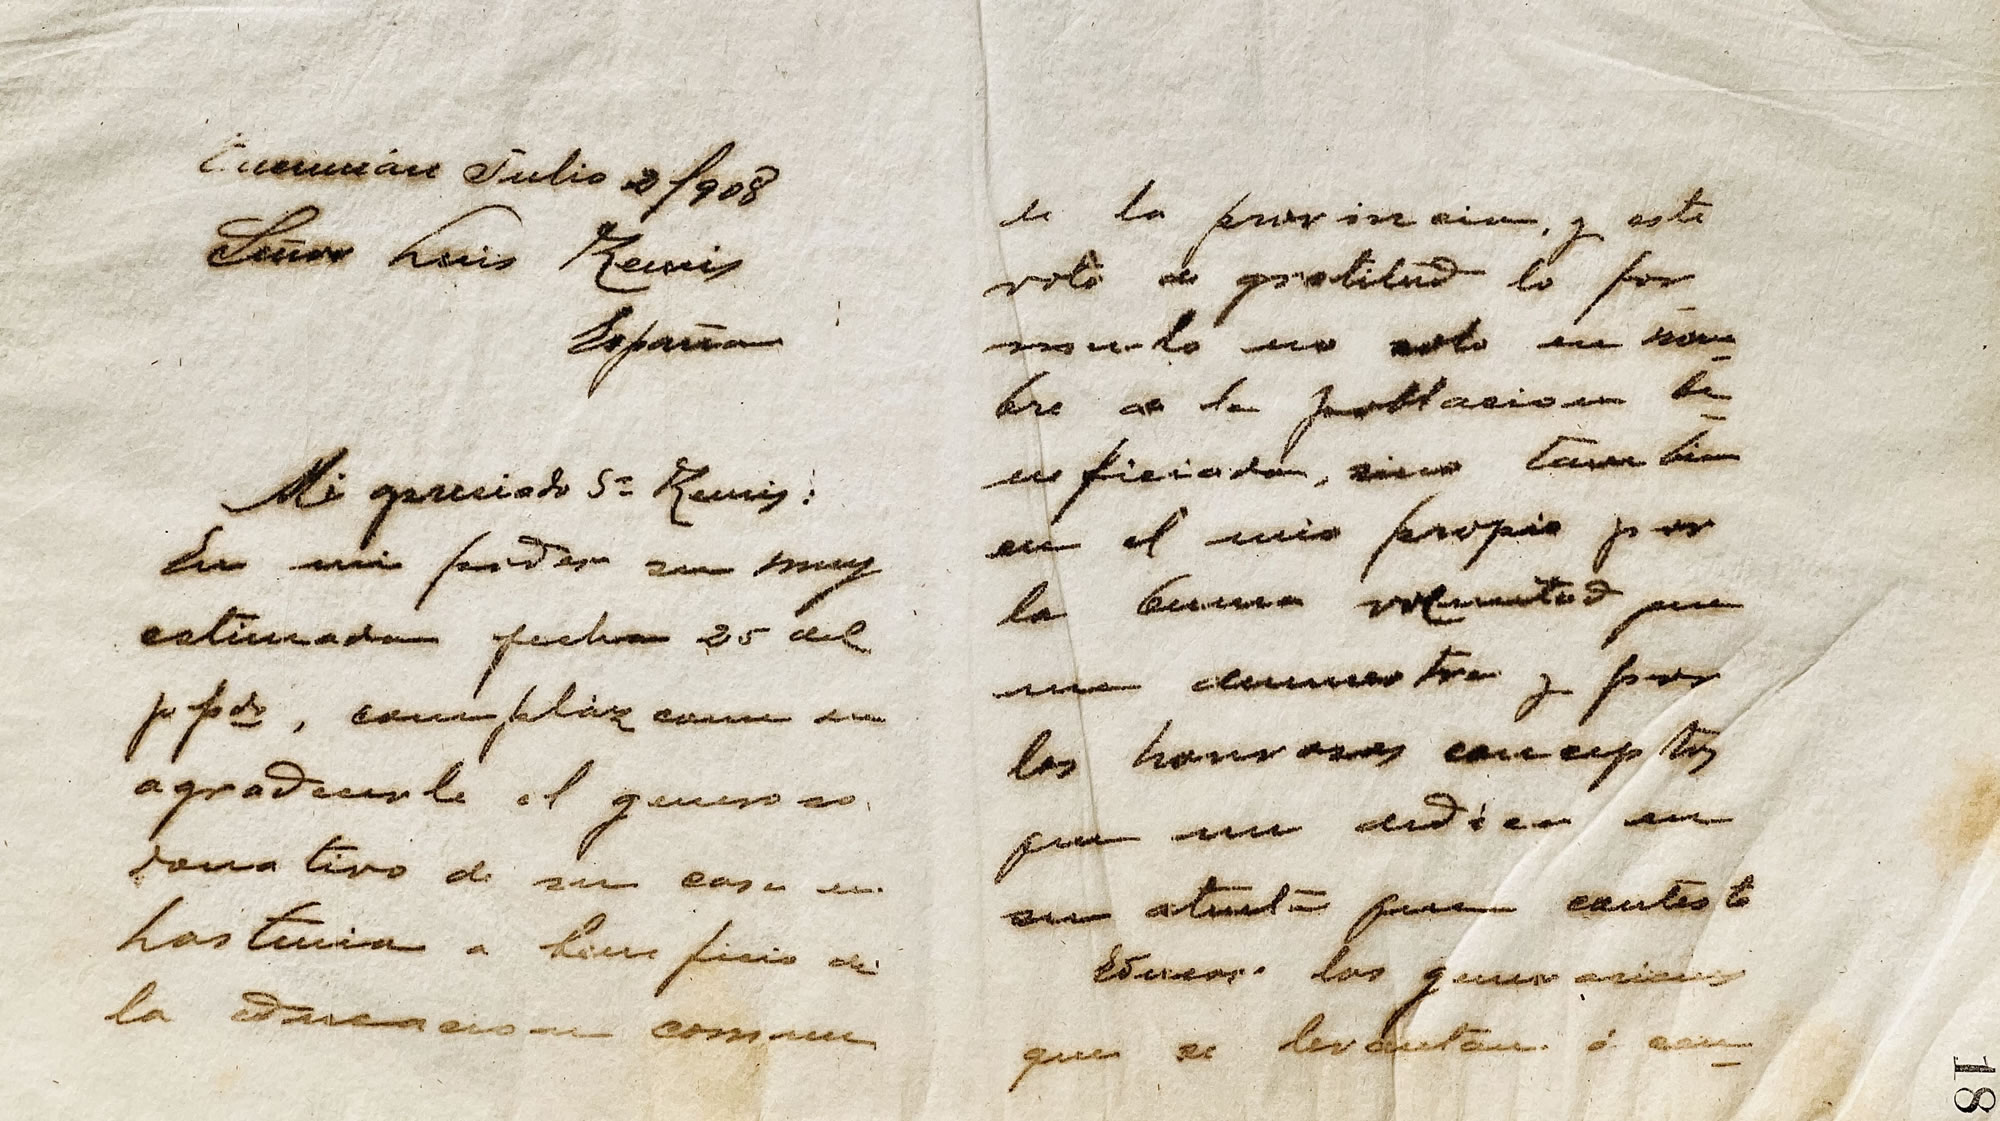 Tucumán Julio 2/908
Señor Luis Zeuis
España
Mi apreciado Sr Zeuis:
En mi poder su muy
estimada fecha 25 del
ppdo, complazcome en
agradecerle el generoso
donativo de su casa en
hosteria a beneficio de
la educacion comun
de la provincia, y este
voto de gratitud lo for
mulo no solo en nom
bre de la poblacion be
neficiada, sino tambien
en el mio propio por
la buena voluntad que
me demuestra y por
los honrosos conceptos
que me dedica en
su atenta que contesto
Educar los generaciones
que se levantan ó con
18